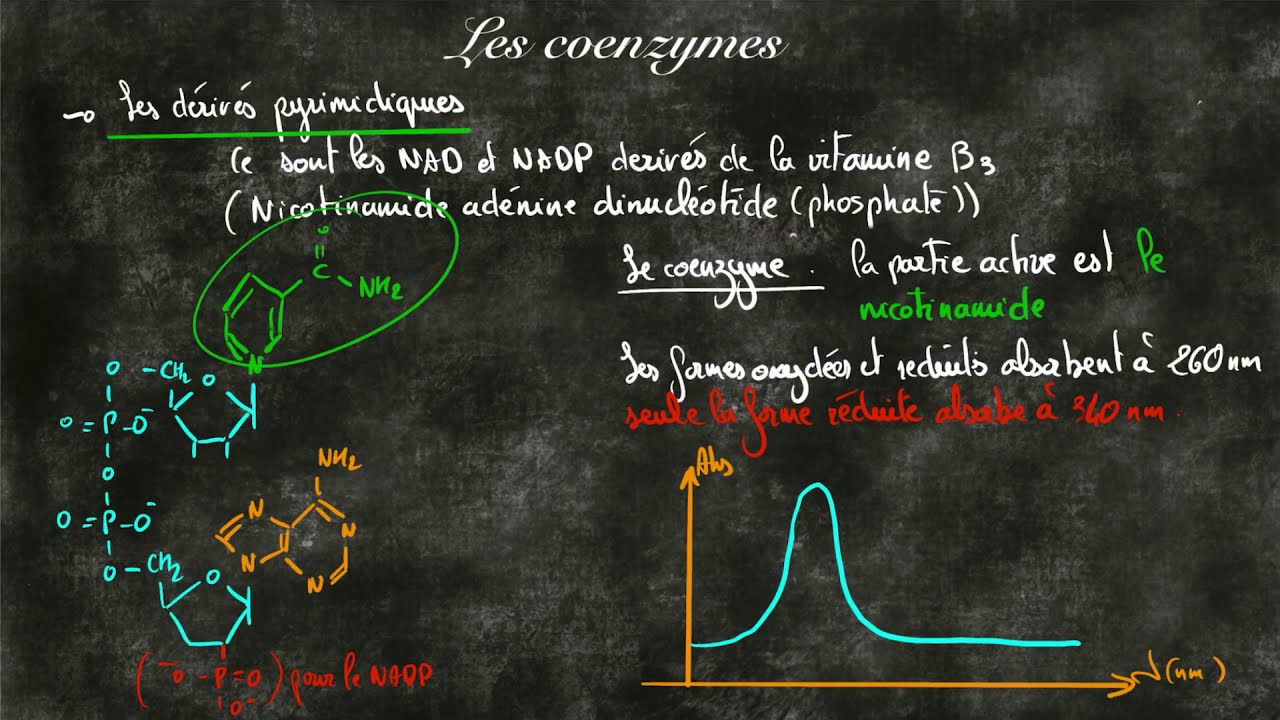 Les coenzymes
→ Les dérivés pyrimidiques
Ce sont les NAD et NADP derivés de la vitamine B3
(Nicotinamide adénine dinucléotide (phosphate))
O
C
NH2
N
Le coenzyme. la partie active est le
nicotinamide
Les formes oxydées et reduits absorbent à 260 nm
seule la forme réduite absorbe à 340 nm.
O - CH2 O
O = P - O⁻
O
O = P - O⁻
O - CH2 O
NH2
N N
N N
Abs
(⁻O - P = O) pour le NADP
O⁻
(nm)